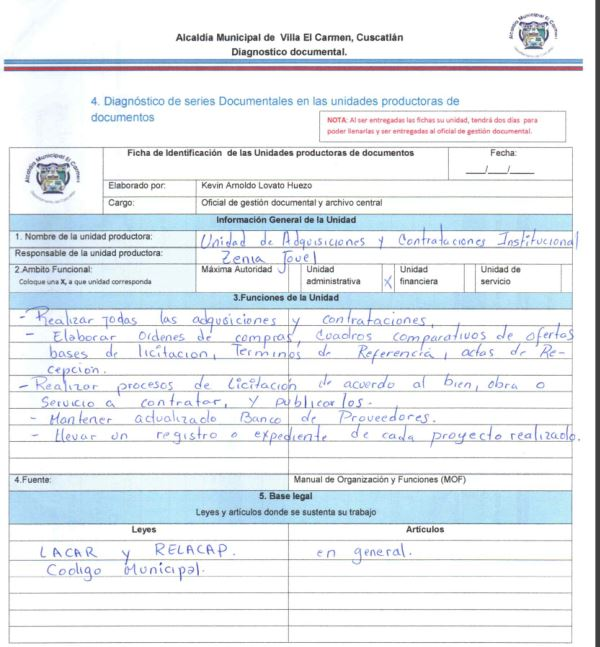 Alcaldía Municipal de Villa El Carmen, Cuscatlán
Diagnostico documental.
4. Diagnóstico de series Documentales en las unidades productoras de
documentos
NOTA: Al ser entregadas las fichas su unidad, tendrá dos días para
poder llenarlas y ser entregadas al oficial de gestión documental.
Ficha de Identificación de las Unidades productoras de documentos
Fecha:
__/__/__
Elaborado por: Kevin Arnoldo Lovato Huezo
Cargo: Oficial de gestión documental y archivo central
Información General de la Unidad
1. Nombre de la unidad productora: Unidad de Adquisiciones y Contrataciones Institucional
Responsable de la unidad productora: Zenia Jovel
2.Ambito Funcional: Máxima Autoridad Unidad X Unidad Unidad de
Coloque una X, a que unidad corresponda administrativa financiera servicio
3.Funciones de la Unidad
- Realizar todas las adquisiciones y contrataciones,
- Elaborar Ordenes de compras, Cuadros comparativos de ofertas
bases de licitacion, Terminos de Referencia, actas de Re-
cepcion.
- Realizar procesos de Licitación de acuerdo al bien, obra o
Servicio a contratar, y publicarlos.
- Mantener actualizado Banco de Proveedores.
- llevar un registro o expediente de cada proyecto realizado.
4.Fuente: Manual de Organización y Funciones (MOF)
5. Base legal
Leyes y artículos donde se sustenta su trabajo
Leyes Artículos
LACAR y RELACAP. en general.
Codigo Municipal.